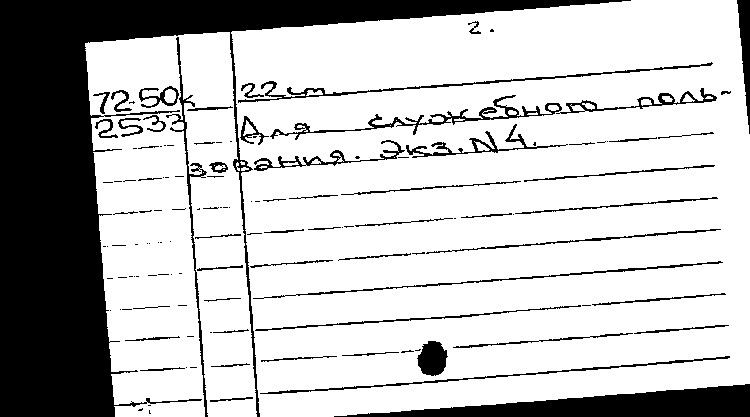 2.
72-50к 22 cm.
2533 Для служебного поль-
зования. Экз. N 4.